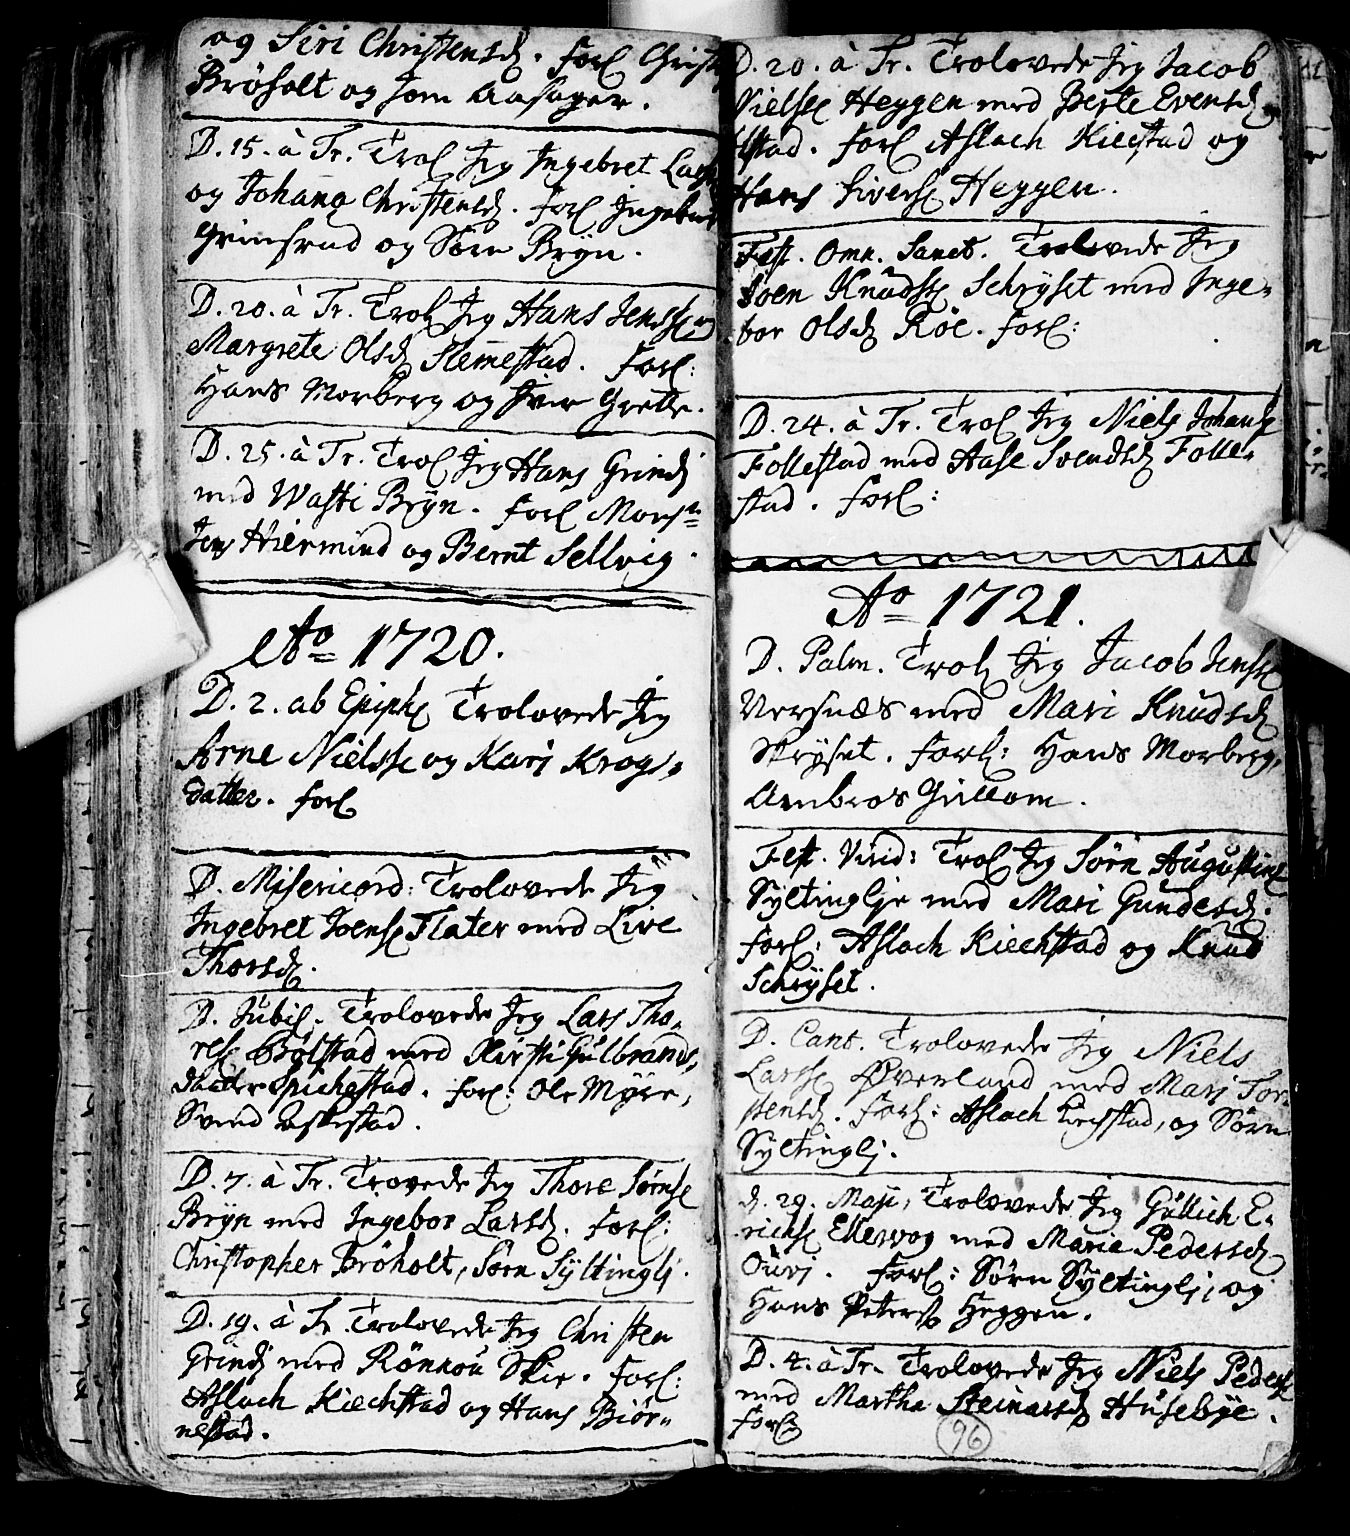 og Siri Christensd. Forl Christ
Bröholt og Jom Aasager.
D. 15. à Tr. Trol Jeg Ingebret Lars
og Johana Christensd. Forl Ingebret
Grinsrud og Sörn Bryn.
D. 20. à Tr. Trol Jeg Hans Jenss og
Margrete Olsd Slemestad. Forl:
Hans Morberg og Iver Grette.
D. 25. à Tr. Trol Jeg Hans Grindj
med Wasti Bryn. Forl Mons
Jens Hiermind og Bernt Sellvig.
Ao 1720.
D. 2. ab Epiph Trolovede Jeg
Arne Nielss og Kari Krogs
datter. Forl
D. Misericord: Trolovede Jeg
Ingebret Joens Flater med Live
Thorsd.
D. Jubil. Trolovede Jeg Lars Tho,
res Bölstad med Kirsti Gulbrands,
datter Spichestad. Forl: Ole Myre,
Svend Askestad.
D. 7. à Tr. Trovede Jeg Thore Sörns
Bryn med Ingebor Larsd. Forl:
Christopher Bröholt, Sörn Syltinglj.
D. 19. à Tr. Trolovede Jeg Christen
Grindj med Rönnou Skie. Forl:
Aslach Kiechstad og Hans Biör,
nestad.
D. 20. à Tr. Trolovede Jeg Jacob
Nielss Heggen med Berte Evensd
stad. Forl Aslach Kiecstad og
Hans Sivers Heggen.
Fest. Omn. Sanct. Trolovede Jeg
Soen Knuds Schryset med Inge,
bor Olsd Röe. Forl:
D. 24. à Tr. Trol Jeg Niels Johans
Follestad med Aase Svendsd Folle,
stad. Forl:
Ao 1721.
D. Palm. Trol Jeg Jacob Jens
Nersnæs med Mari Knudsd
Skryset. Forl: Hans Morberg,
Ambros Gullom.
Fest. Virid: Trol Jeg Sörn Augustins
Syltinglje med Mari Gundersd.
Forl: Aslach Kiechstad og Knud
Schryset.
D. Cant. Trolovede Jeg Niels
Larss Øverland med Marj Tor,
stensd. Forl: Aslach Kiechstad, og Sörn
Syltinglj.
d. 29. Maji, Trolovede Jeg Gullich E,
richs Ellevog med Marie Pedersd
Ourj. Forl: Sörn Syltinglj, og
Hans Peters Heggen.
D. 4. à Tr. Trolovede Jeg Niels Peders
med Martha Steinarsd Husebye.
Forl
96